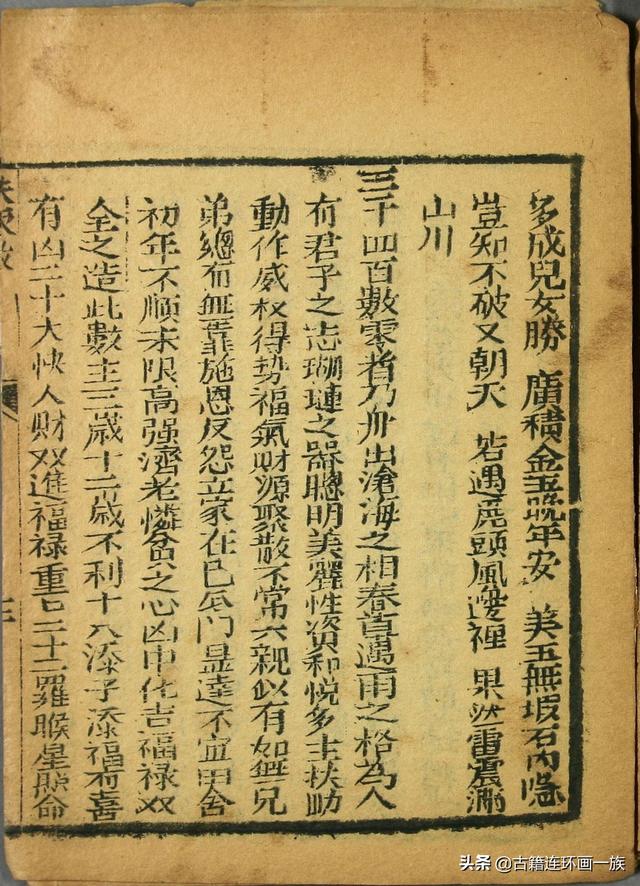 多成兒女勝 廣積金玉晚年安 美玉無瑕石內臨
豈知不破又朝天 若遇鹿頭風邊裡 果然雷震滿
山川
三千四百數零者乃舟出滄海之相春苗遇雨之格為人
有君子之志瑚璉之器聰明美麗性資和悅多主扶助
動作威权得势福氣財源聚散不常六親似有如無兄
弟總有無靠施恩反怨立家在己瓜门显達不宜田舍
初年不順末限高强濟老憐貧之心凶中化吉福禄双
全之造此數主三歲十二歲不利十八添子添福有喜
有凶二十大快人財双進福禄重二十二羅睺星照命
头条 @古籍连环画一族